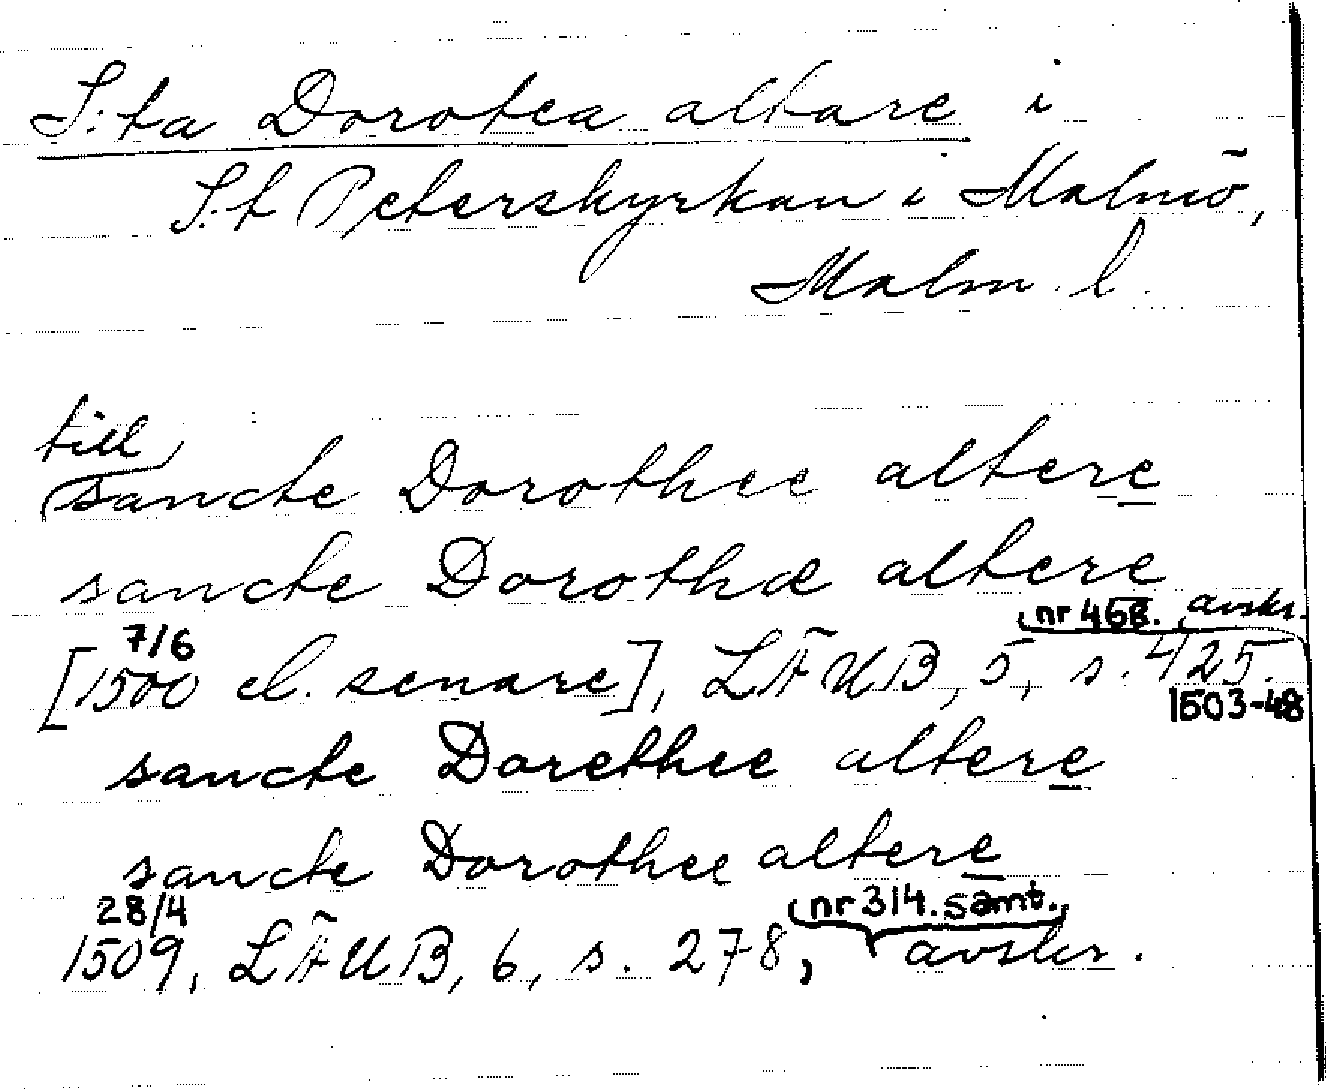 S:ta Dorotea altare i
S:t Peterskyrkan i Malmö,
Malm. l.
till
sancte Dorothee altere
sancte Dorothæ altere
nr 468. avskr.
7/6
[1500 el. senare], LÄUB, 5, s. 425.
1503-48
sancte Dorethee altere
sancte Dorothee altere
28/4 nr 314. samt.
1509, LÄUB, 6, s. 278, avskr.